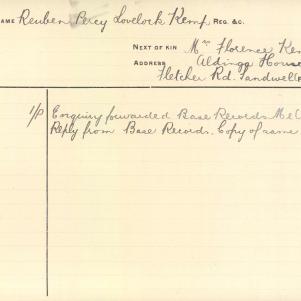 NAME Reuben Percy Lovelock Kemp, REG. &C.
NEXT OF KIN Mrs Florence Kem
ADDRESS Aldinga House
Fletcher Rd.
1/P Enquiry forwarded Base Records
Reply from Base Records. Copy of same